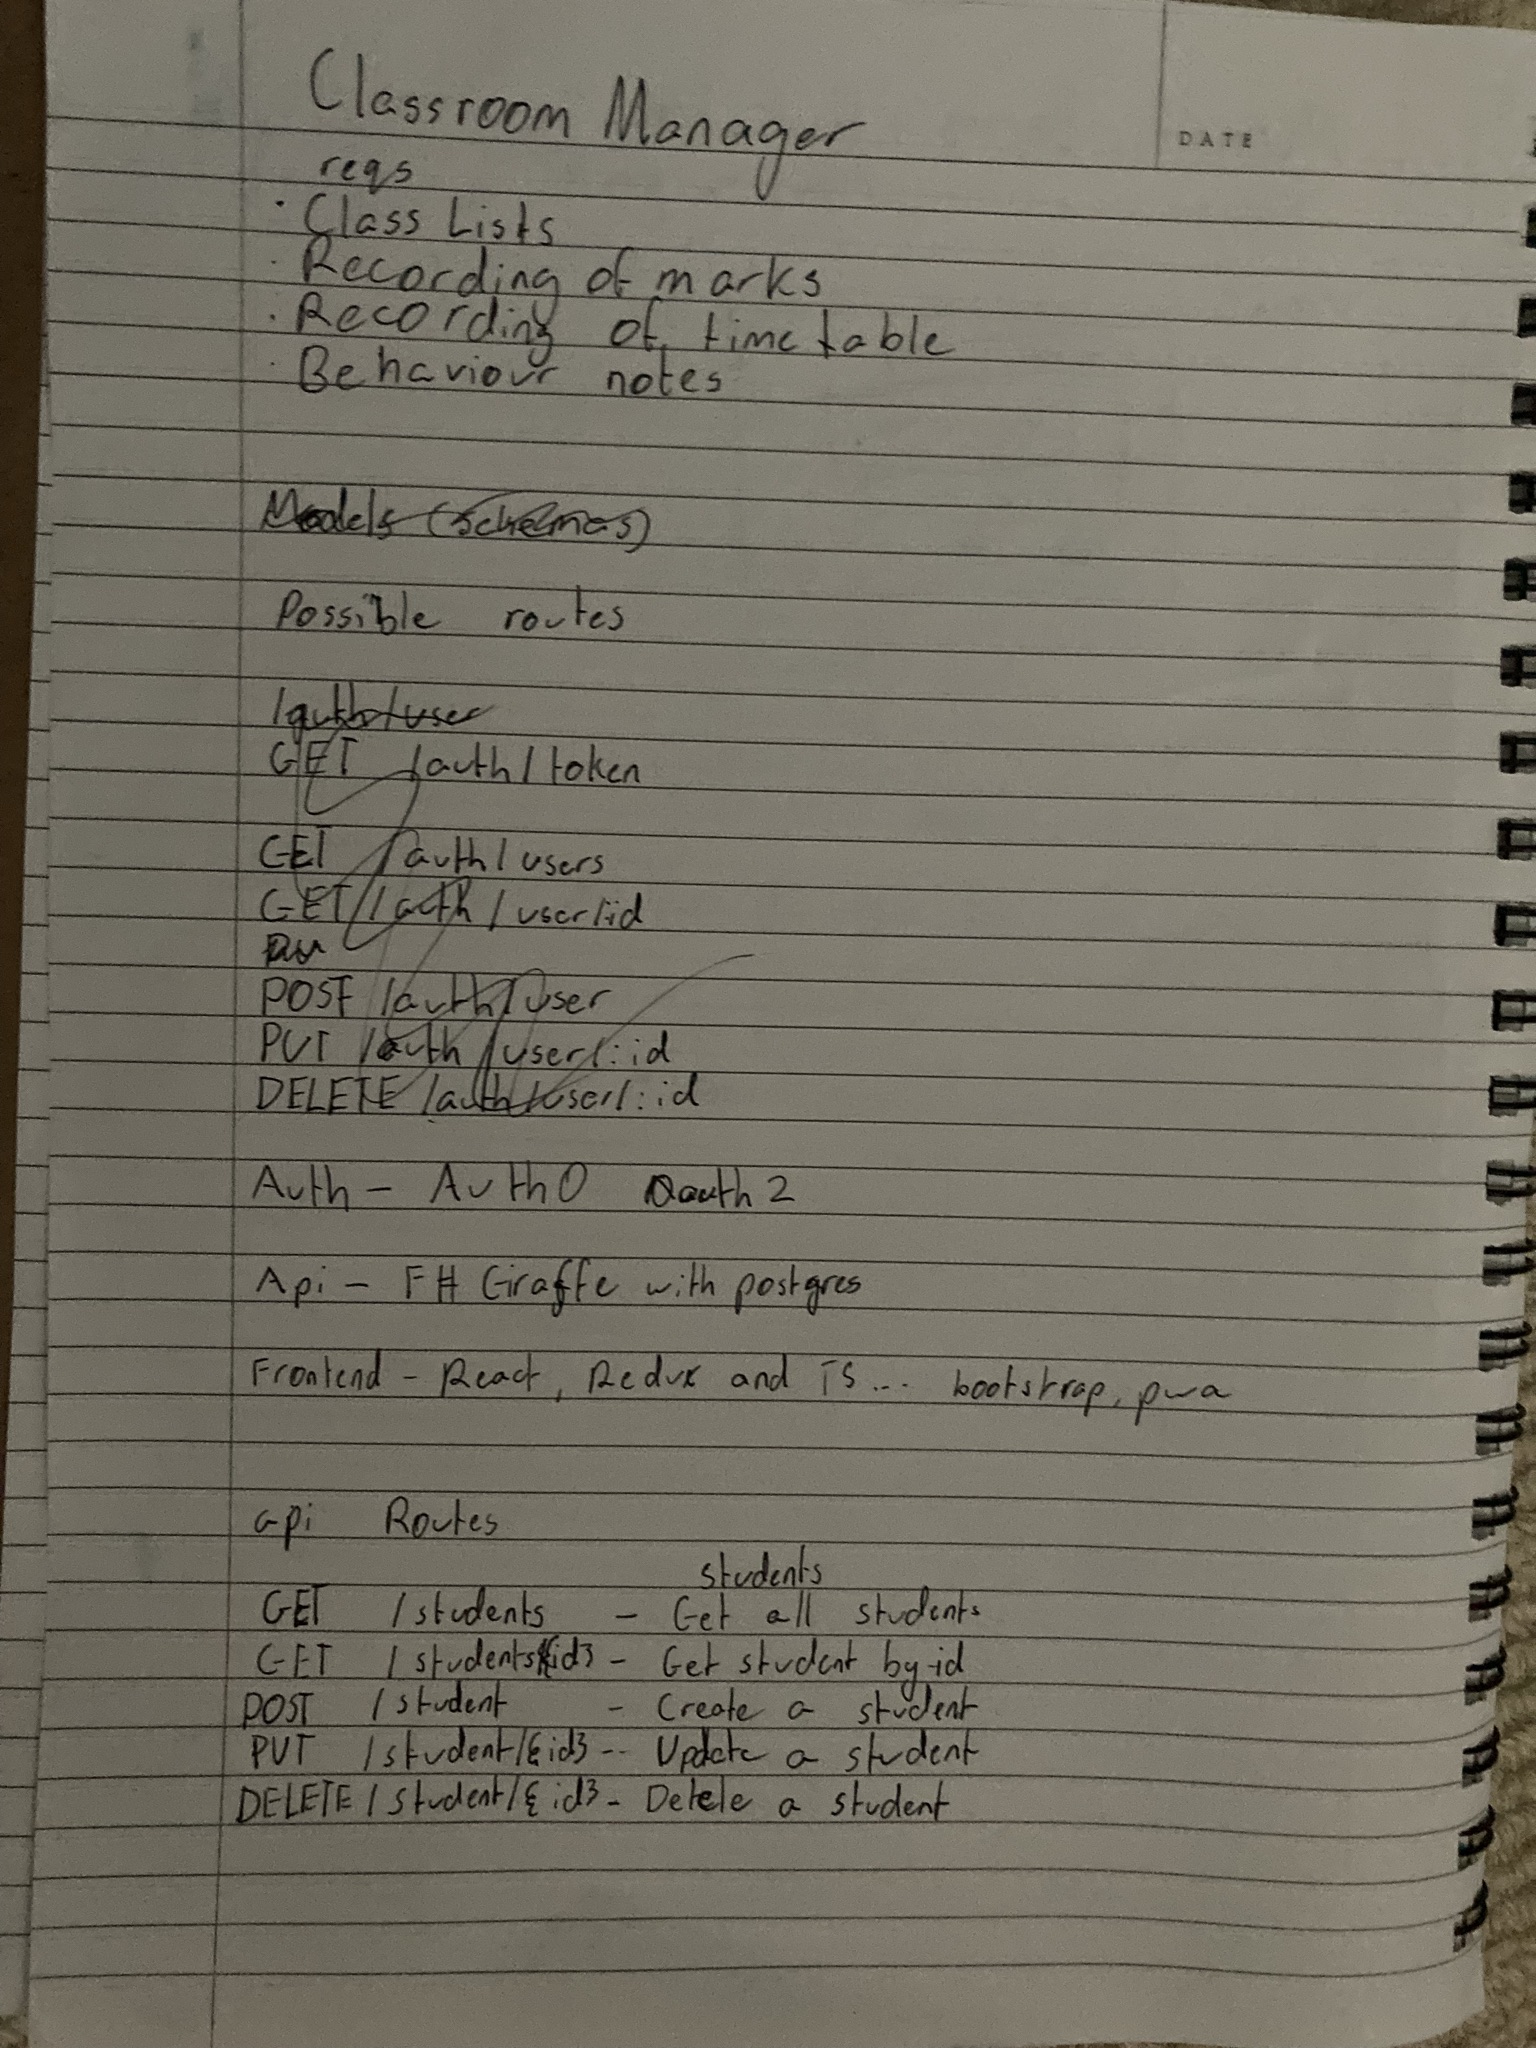 Classroom Manager
DATE
reqs
· Class Lists
· Recording of marks
· Recording of timetable
· Behaviour notes
Models (schemas)
Possible routes
/auth/user
GET /auth/token
GET /auth/users
GET /auth/user/id
POST /auth/user
PUT /auth/user/:id
DELETE /auth/user/:id
Auth - Auth0 Oauth 2
Api - F# Giraffe with postgres
Frontend - React, Redux and TS... bootstrap, pwa
api Routes
students
GET /students - Get all students
GET /students/{id} - Get student by id
POST /student - Create a student
PUT /student/{id} -- Update a student
DELETE /student/{id} - Detele a student